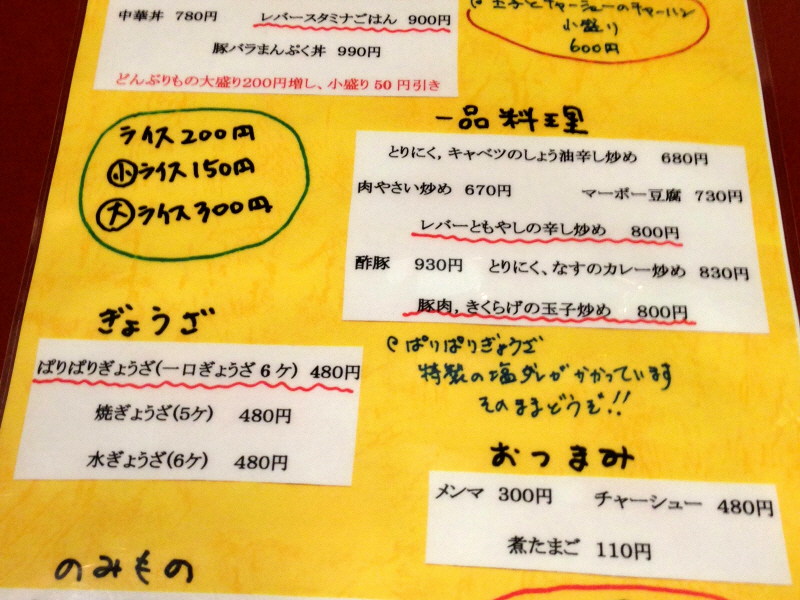 中華丼 780円 レバースタミナごはん 900円
豚バラまんぷく丼 990円
どんぶりもの大盛り200円増し、小盛り50円引き
玉子とチャーシューのチャーハン
小盛り
600円
ライス200円
小ライス150円
大ライス300円
一品料理
とりにく,キャベツのしょう油辛し炒め 680円
肉やさい炒め 670円 マーボー豆腐 730円
レバーともやしの辛し炒め 800円
酢豚 930円 とりにく、なすのカレー炒め 830円
豚肉,きくらげの玉子炒め 800円
ぎょうざ
ぱりぱりぎょうざ(一口ぎょうざ6ケ) 480円
焼ぎょうざ(5ケ) 480円
水ぎょうざ(6ケ) 480円
ぱりぱりぎょうざ
特製の塩ダレがかかっています
そのままどうぞ!!
おつまみ
メンマ 300円 チャーシュー 480円
煮たまご 110円
のみもの